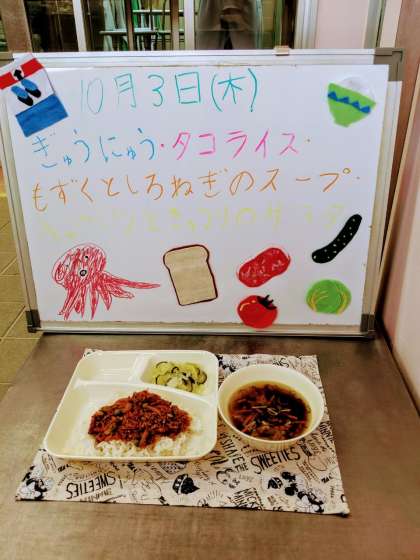 10月3日(木)
ぎゅうにゅう・タコライス・
もずくとしろねぎのスープ・
キャベツときゅうりのサラダ
SWEETIES
SWEETIES